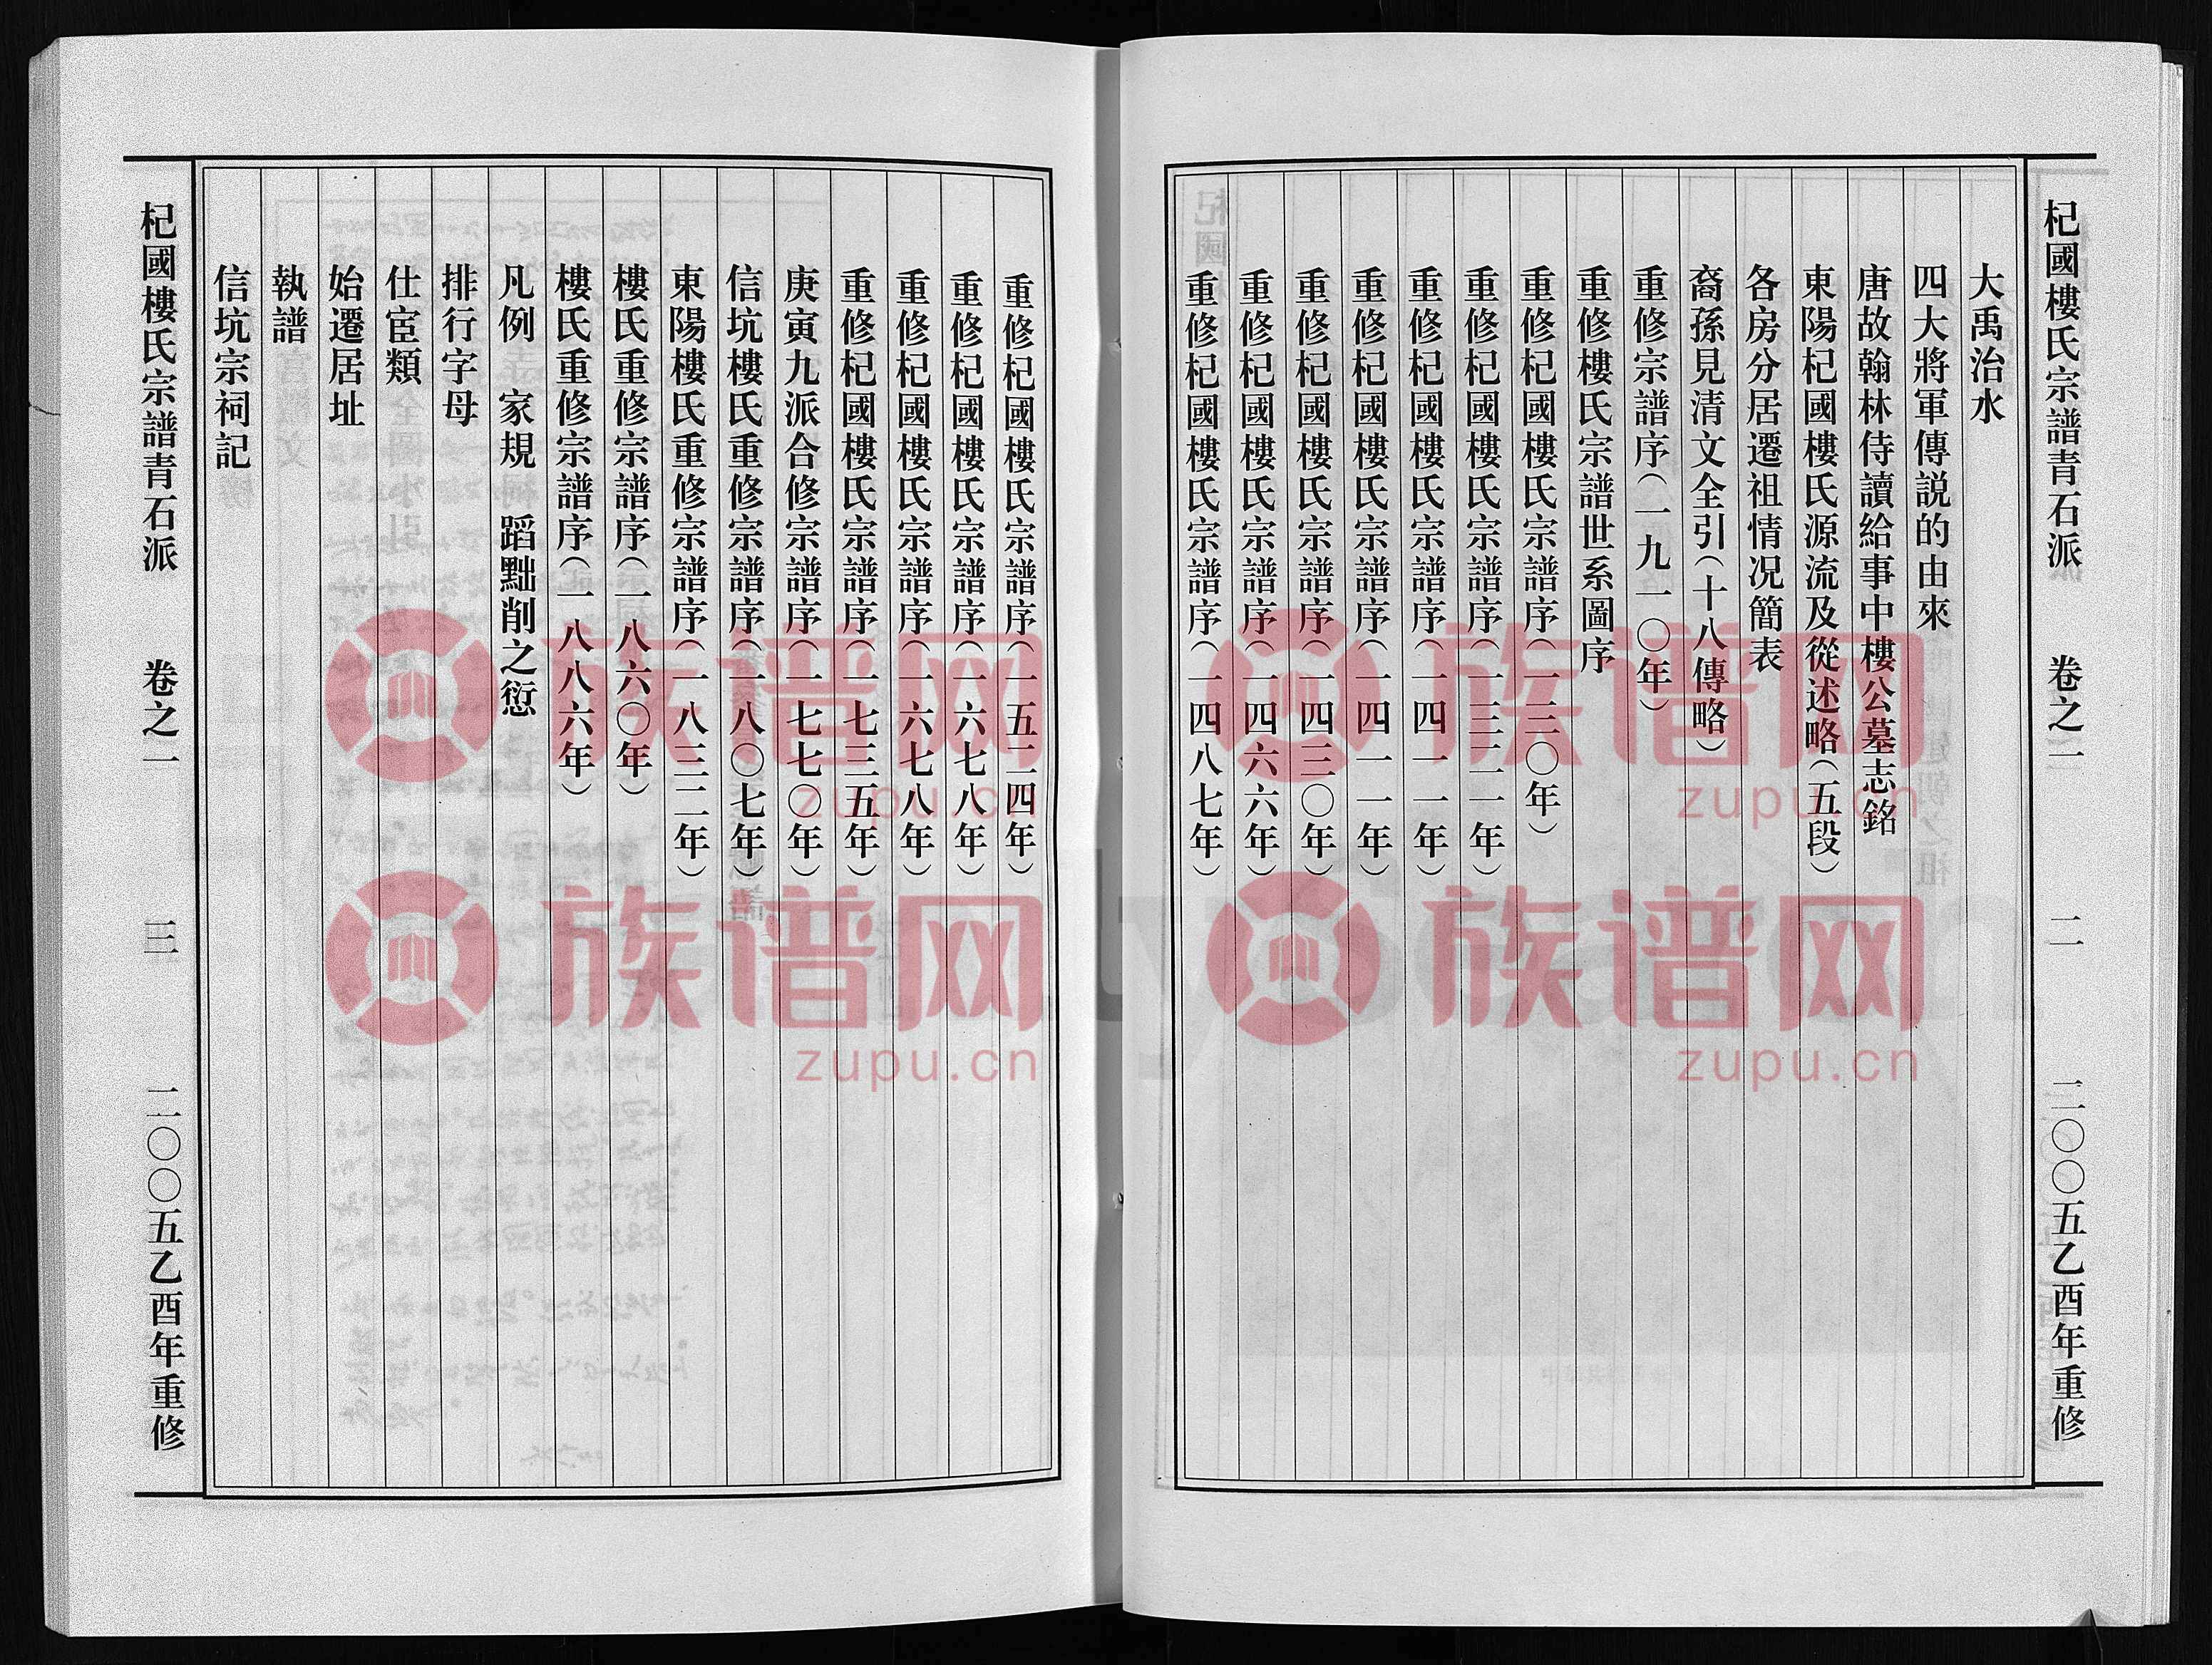 杞國樓氏宗譜青石派　卷之一　二　二〇〇五乙酉年重修
大禹治水
四大將軍傳説的由來
唐故翰林侍讀給事中樓公墓志銘
東陽杞國樓氏源流及從述略（五段）
各房分居遷祖情况簡表
裔孫見清文全引（十八傳略）
重修宗譜序（一九一〇年）
重修樓氏宗譜世系圖序
重修杞國樓氏宗譜序（一三一〇年）
重修杞國樓氏宗譜序（一三三一年）
重修杞國樓氏宗譜序（一四一一年）
重修杞國樓氏宗譜序（一四一一年）
重修杞國樓氏宗譜序（一四三〇年）
重修杞國樓氏宗譜序（一四六六年）
重修杞國樓氏宗譜序（一四八七年）
重修杞國樓氏宗譜序（一五二四年）
重修杞國樓氏宗譜序（一六七八年）
重修杞國樓氏宗譜序（一六七八年）
重修杞國樓氏宗譜序（一七三五年）
庚寅九派合修宗譜序（一七七〇年）
信坑樓氏重修宗譜序（一八〇七年）
東陽樓氏重修宗譜序（一八三二年）
樓氏重修宗譜序（一八六〇年）
樓氏重修宗譜序（一八八六年）
凡例　家規　蹈黜削之愆
排行字母
仕宦類
始遷居址
執譜
信坑宗祠記
杞國樓氏宗譜青石派　卷之一　三　二〇〇五乙酉年重修
族谱网
zupu.cn
族谱网
zupu.cn
族谱网
zupu.cn
族谱网
zupu.cn